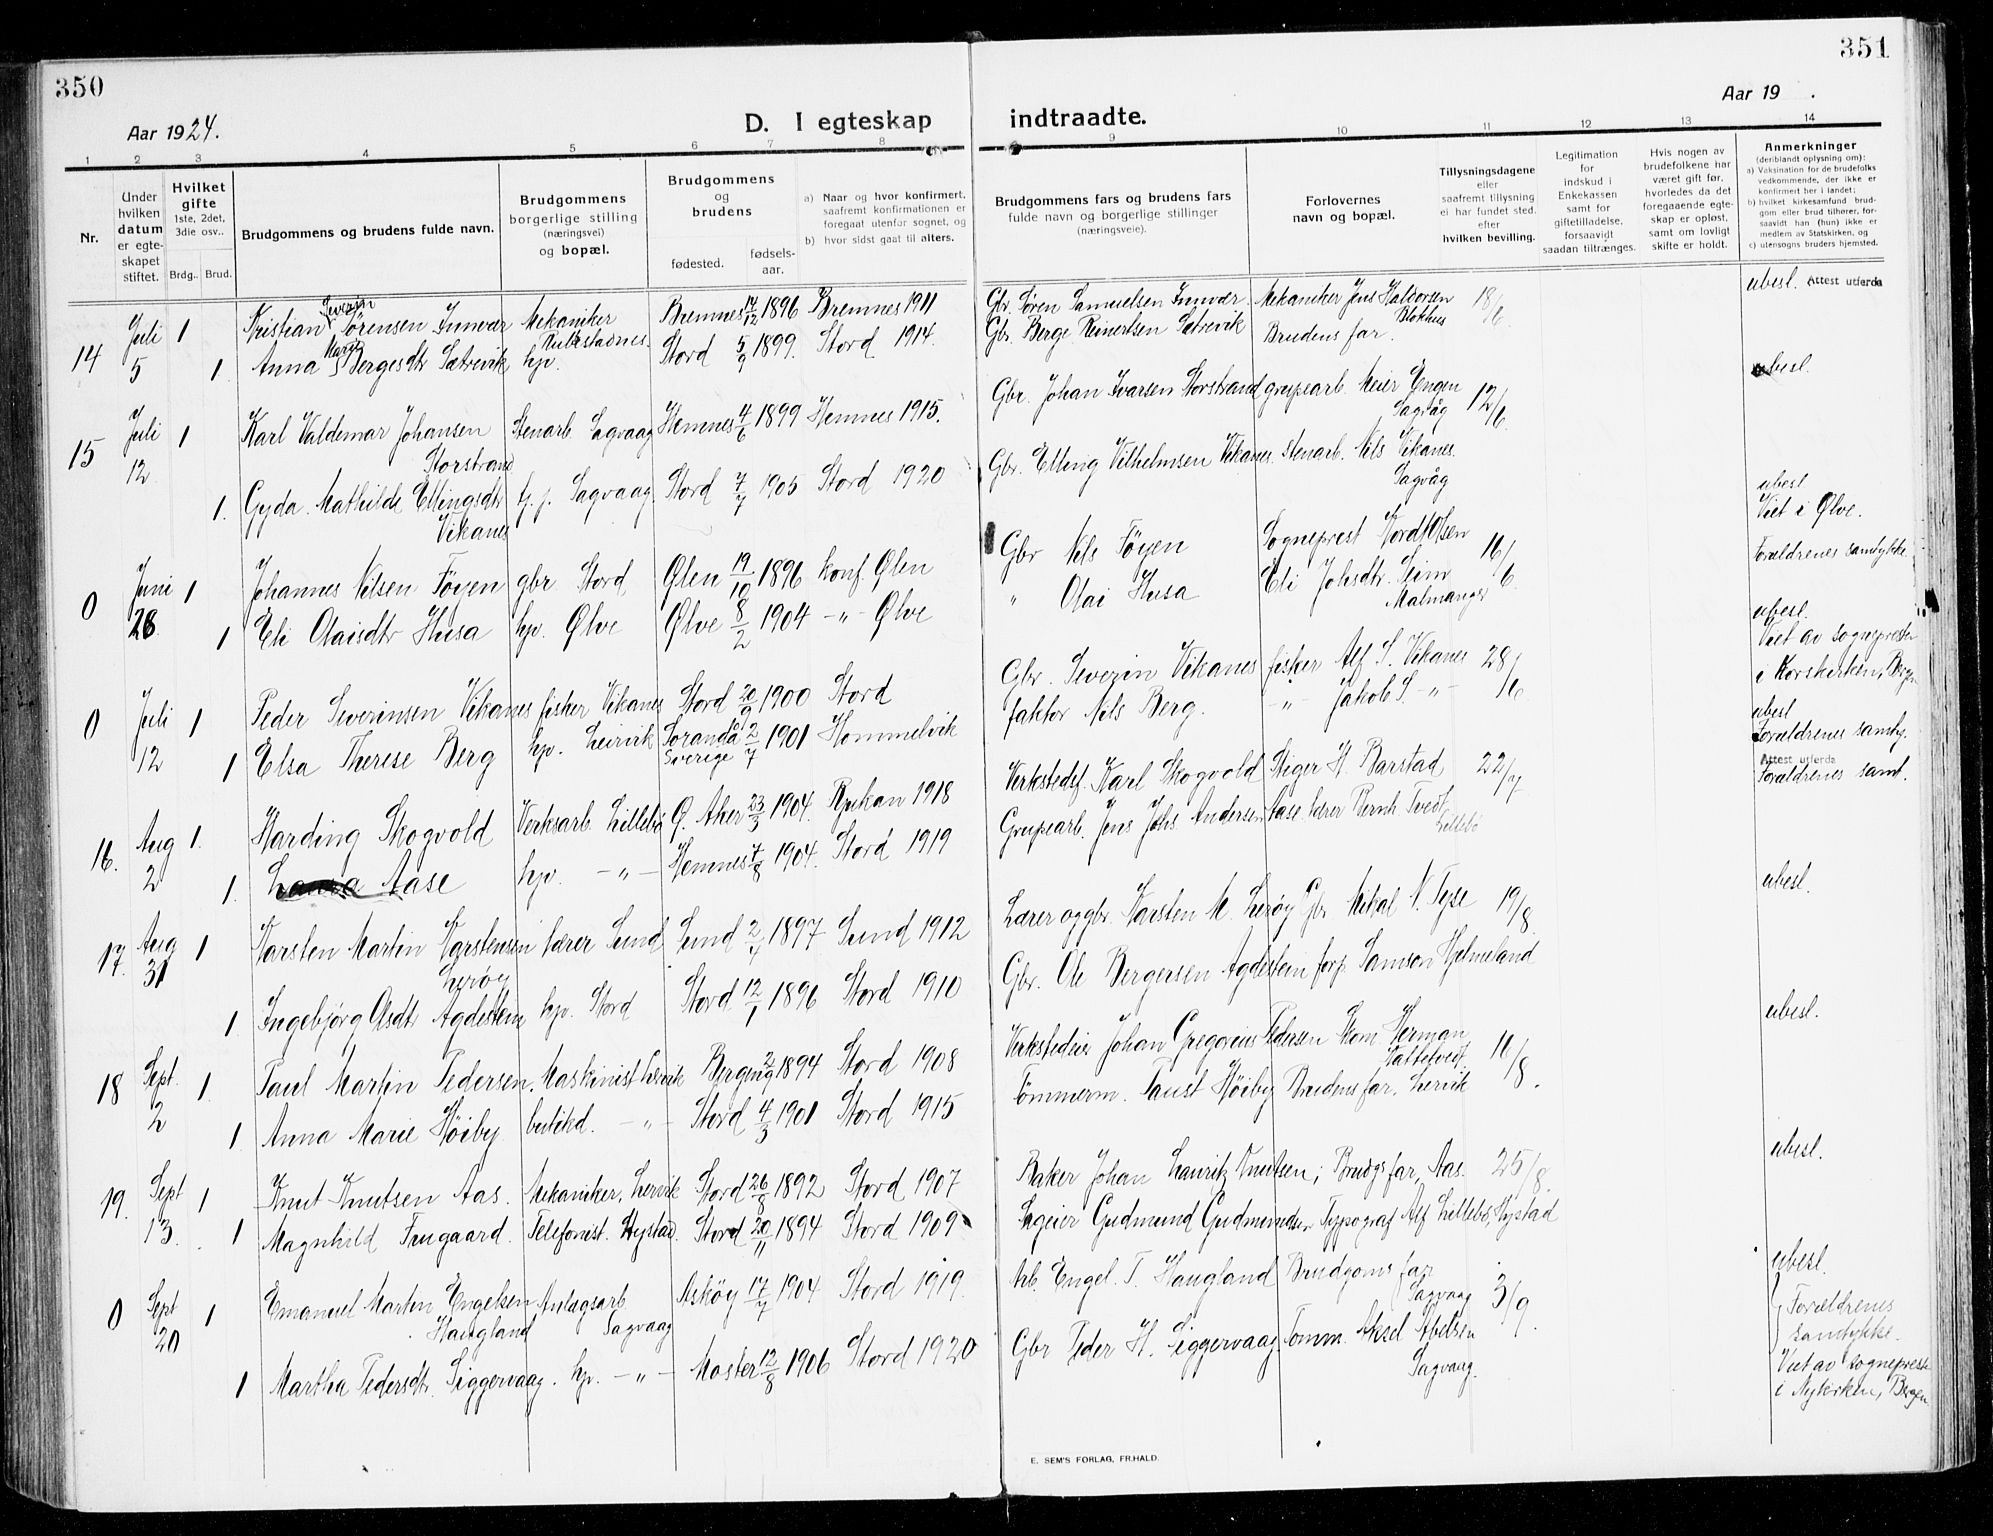 350
Aar 1924.
D. I egteskap
1 2 3 4 5 6 7 8
Nr.
Under hvilken datum er egteskapet stiftet.
Hvilket gifte 1ste, 2det, 3die osv..
Brdg.. Brud.
Brudgommens og brudens fulde navn.
Brudgommens borgerlige stilling (næringsvei) og bopæl.
Brudgommens og brudens
fødested. fødselsaar.
a) Naar og hvor konfirmert, saafremt konfirmationen er foregaat utenfor sognet, og
b) hvor sidst gaat til alters.
14 Juli 5 1 Kristian Severin Sörensen Innvær Mekaniker Bremnes 17/12 1896 Bremnes 1911
1 Anna Marie Bergesdtr Sætrevik hjv. Stord 5/9 1899. Stord 1914.
15 Juli 12. 1 Karl Valdemar Johansen Storstrand Stenarb. Sagvaag Hemnes 4/6 1899 Hemnes 1915.
1. Gyda Mathilde Ellingsdtr Vikanes h. j. Sagvaag. Stord 7/7 1905 Stord 1920
0 Juni 28 1 Johannes Nilsen Föyen gbr Stord Ølen 19/10 1896 konf. Ølen
1 Eli Olaisdtr Husa hjv. Ølve Ølve 8/2 1904 -"- Ølve
0 Juli 12 1 Peder Severinsen Vikanes fisker Vikanes Stord 20/9 1900 Stord
1 Elsa Therese Berg hjv. Leirvik Sverige 2/7 1901 Hommelvik
16. Aug 2 1. Harding Skogvold Verksarb. Lillebö Ö. Aker 23/3 1904. Rjukan 1918
1. Aase hjv. -"- Hemnes 7/8 1904. Stord 1919
17. Aug 31 1 Karsten Martin Karstensen Leröy lærer Sund Sund 2/4 1897 Sund 1912
1. Ingebjörg Olsdtr Agdestein hjv. Stord Stord 12/1 1896 Stord 1910
18 Sept. 2 1. Paul Martin Pedersen. Maskinist Lervik Bergen 2/9 1894 Stord 1908
1 Anna Marie Höiby butikd. -"- Stord 4/3 1901 Stord 1915
19. Sept 13. 1 Knut Knutsen Aas. Mekaniker, Lervik Stord 26/8 1892 Stord 1907
1 Magnhild Frugaard. Telefonist. Hystad. Stord 20/11 1894 Stord 1909
0 Sept 20 1 Emanuel Martin Engelsen Haugland Anlægsarb. Sagvaag Asköy 17/7 1904 Stord 1919.
1 Martha Pedersdtr. Siggervaag. hjv. -"- Moster 12/8 1906 Stord 1920
351
Aar 19 .
indtraadte.
9 10 11 12 13 14
Brudgommens fars og brudens fars fulde navn og borgerlige stillinger (næringsveie).
Forlovernes navn og bopæl.
Tillysningsdagene eller saafremt tillysning ei har fundet sted. efter hvilken bevilling.
Legitimation for indskud i Enkekassen samt for giftetilladelse, forsaavidt saadan tiltrænges.
Hvis nogen av brudefolkene har været gift før, hvorledes da det foregaaende egteskap er opløst, samt om lovligt skifte er holdt.
Anmerkninger (deriblandt oplysning om):
a) Vaksination for de brudefolks vedkommende, der ikke er konfirmert her i landet;
b) hvilket kirkesamfund brudgom eller brud tilhører, forsaavidt han (hun) ikke er medlem av Statskirken, og
c) utensogns bruders hjemsted.
Gbr. Sören Samuelsen Innvær. Mekaniker Jens Haldorsen Blokhus 18/6 ubesl. Attest utferda
Gbr. Berge Reinertsen Sætrevik Brudens far. ubesl.
Gbr. Johan Ivarsen Storstrand grupearb. Meier Engen Sagvåg 12/6
Gbr. Elling Vilhelmsen Vikanes. stenarb. Nils Vikanes. Sagvåg
ubesl Viet i Ølve.
Gbr Nils Föyen Sogneprest Nordt Olsen 16/6 Forældrenes samtykke.
" Olai Husa Eli Johsdtr. Seim Malmanger
ubesl. Viet av sogneprestn i Korskirken, Bergen
Gbr. Severin Vikanes fisker Alf S. Vikanes 28/6
faktor Nils Berg. -"- Jakob S. -"-
ubesl Forældrenes samty.
Attest utferda
Verkstedsf. Karl Skogvold Stiger H. Barstad 22/7 Forældrenes samt.
Grupearb. Jens Johs. Andersen Aase. lærer Bernh. Tvedt Lillebö
Lærer og gbr. Karsten M. Leröy Gbr. Mikal N. Tyse 19/8. ubesl.
Gbr. Ole Bergersen Agdestein forp. Samson Hjelmeland
Verkstedeier Johan Gregorius Pedersen Skom. Herman Saltetvedt 11/8. ubesl.
Tömmerm. Faust Höiby Brudens far. Lervik
Baker Johan Lauritz Knutsen; Brudgs far, Aas. 25/8 ubesl.
Sageier Gudmund Gudmundsen Typograf Alf Lillebö, Hystad
Arb. Engel. T. Haugland Brudgoms far Sagvaag 3/9. ubesl. Forældrenes samtykke.
Gbr Peder H. Siggervaag. Tömm. Aksel Abelsen Sagvaag. Viet av sogneprestn i Nykirken, Bergen
E. SEM'S FORLAG, FR.HALD.